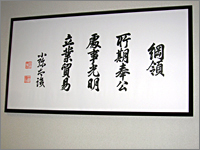 綱領
所期奉公
處事光明
立業貿易
小彌太